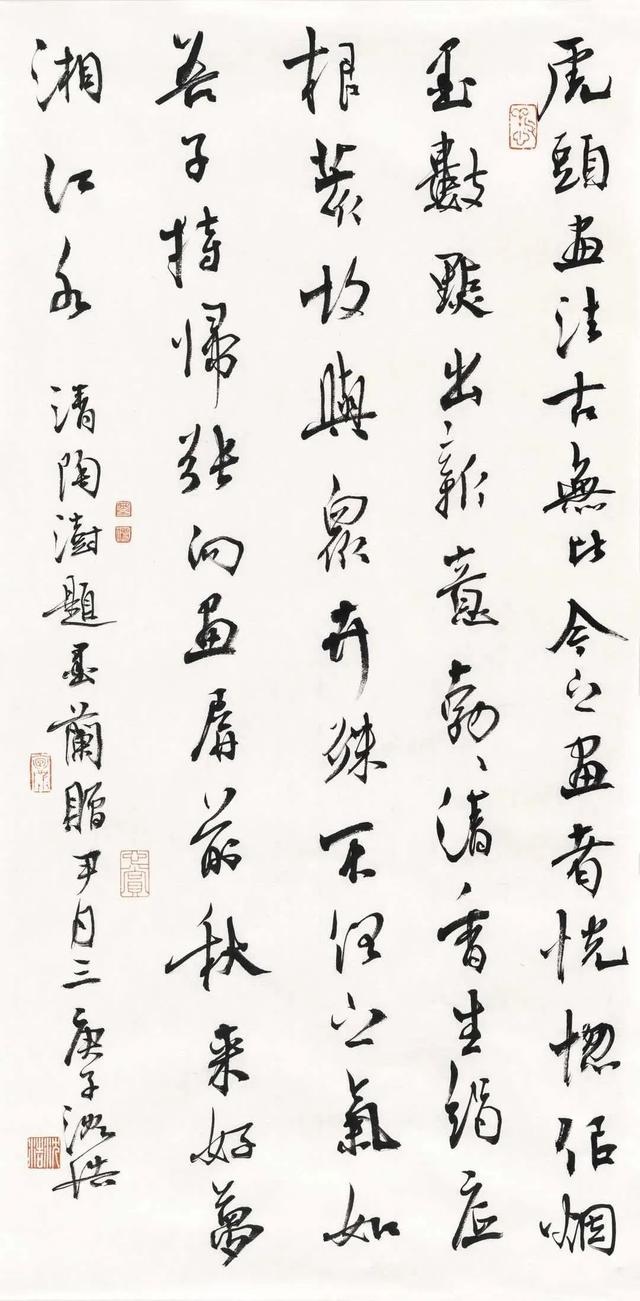 虎頭畫法古無比今之畫者恍惚佀烟
墨數點出新意勃勃清香生絹底
根故與眾卉殊不俗之氣如
吾子持歸張向畫屏前秋來好夢
湘江水 清陶澍題墨蘭贈尹月三 庚子沈浩